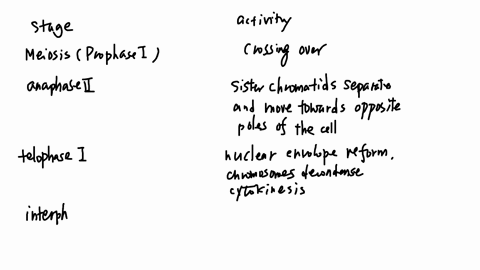 stage activity
Meiosis (Prophase I) Crossing over
anaphase II Sister chromatids separate
and move towards opposite
poles of the cell
telophase I nuclear envelope reform,
chromosomes decondense
cytokinesis
interph